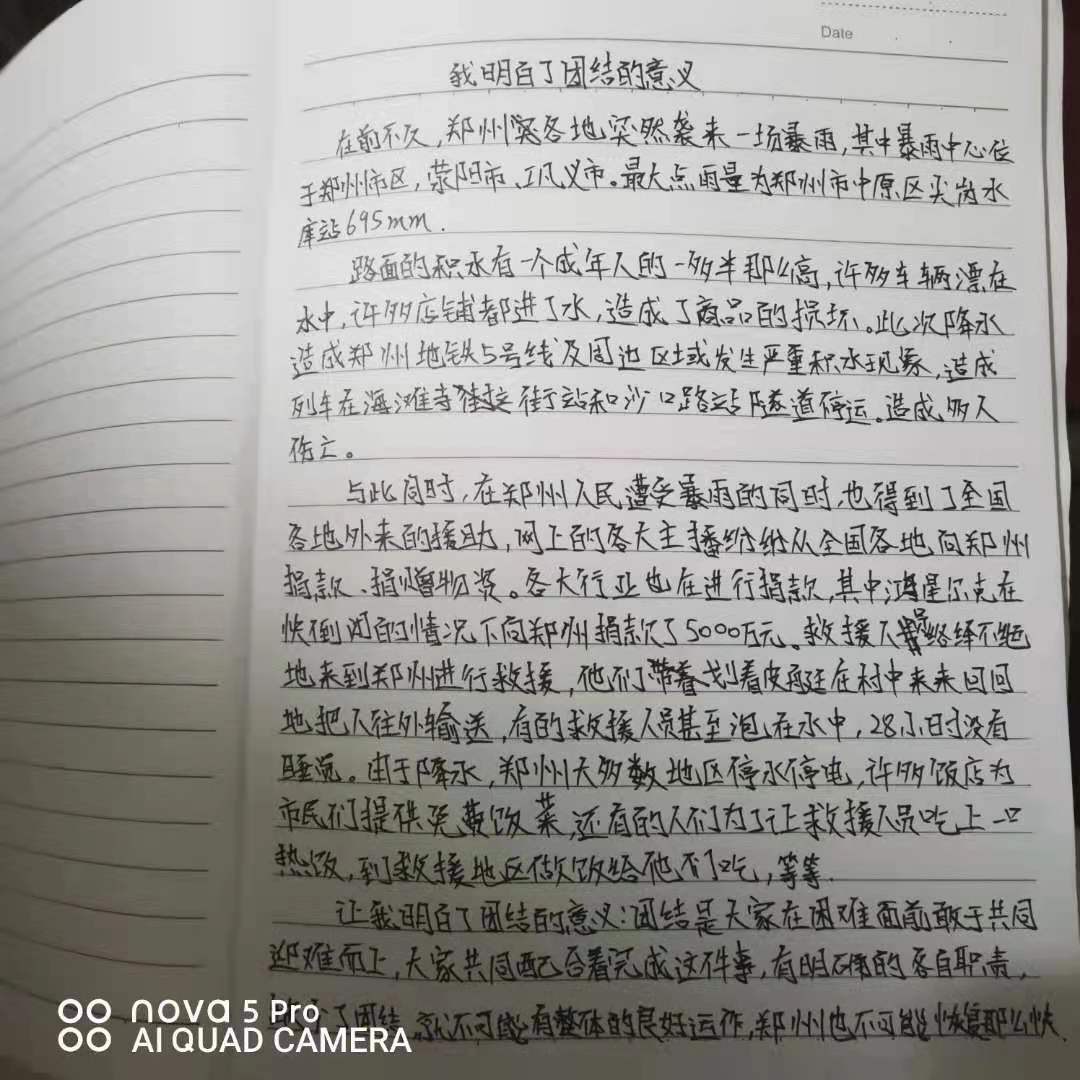 Date
我明白了团结的意义
在前不久,郑州各地突然袭来一场暴雨,其中暴雨中心位
于郑州市区,荥阳市、巩义市。最大点雨量为郑州市中原区尖岗水
库站695mm.
路面的积水有一个成年人的一多半那么高,许多车辆漂在
水中,许多店铺都进了水,造成了商品的损坏。此次降水
造成郑州地铁5号线及周边区域发生严重积水现象,造成
列车在海滩寺街站和沙口路站隧道停运。造成多人
伤亡。
与此同时,在郑州人民遭受暴雨的同时,也得到了全国
各地外来的援助,网上的各大主播纷纷从全国各地向郑州
捐款、捐赠物资。各大行业也在进行捐款,其中鸿星尔克在
快倒闭的情况下向郑州捐款了5000万元。救援人员络绎不绝
地来到郑州进行救援,他们带着划着皮艇在村中来来回回
地把人往外输送,有的救援人员甚至泡在水中,28小时没有
睡觉。由于降水,郑州大多数地区停水停电,许多饭店为
市民们提供免费饭菜,还有的人们为了让救援人员吃上一口
热饭,到救援地区做饭给他们吃,等等.
让我明白了团结的意义:团结是大家在困难面前敢于共同
迎难而上,大家共同配合着完成这件事,有明确的各自职责,
了团结,就不可能有整体的良好运作,郑州也不可能恢复那么快
nova 5 Pro
AI QUAD CAMERA